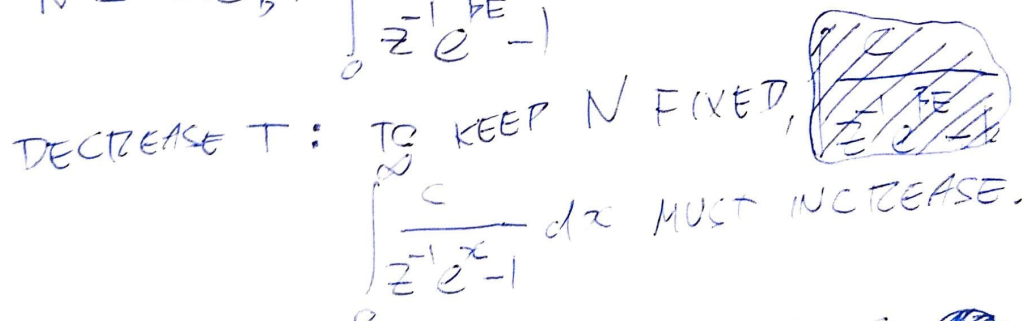 ∫₀ z⁻¹e^{βE}-1
DECREASE T: TO KEEP N FIXED,
∫₀^∞ c/(z⁻¹e^x-1) dx MUST INCREASE.